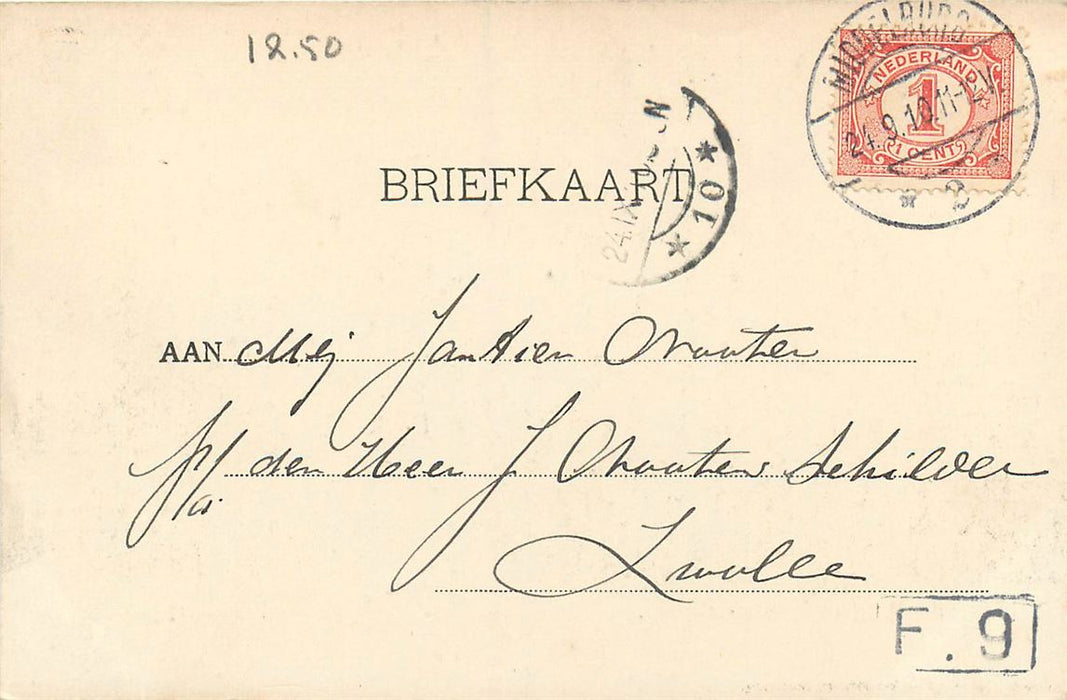 12.50
MIDDELBURG
24.9.10.11-1 V
* 2
NEDERLAND
1
1 CENT
BRIEFKAART
24.IX
N
* 10 *
AAN Mej Jantien
p/a den Heer J Schilder
Zwolle
F. 9